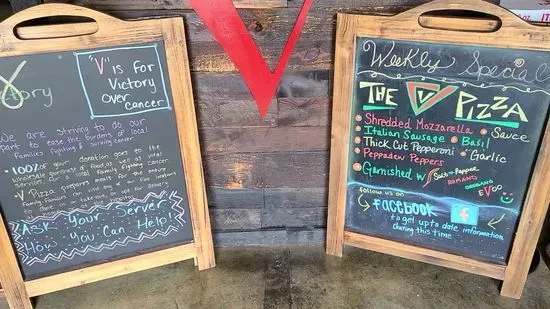 "V" is For
Victory
over
cancer
We are striving to do our
part to ease the burdens of local
Families Fighting & surviving cancer.
100% of your donation goes to the
wholesale purchase of food as well as vital
V Pizza prepares meals for the entire
Ask Your Server
How You Can Help!
Weekly Special
THE V PIZZA
Shredded Mozzarella Sauce
Italian Sausage Basil
Thick Cut Pepperoni Garlic
Peppadew Peppers
Garnished w/ Salt + Pepper
ROMANO
OREGANO
EVOO
follow us on
facebook f
to get up to date information
during this time